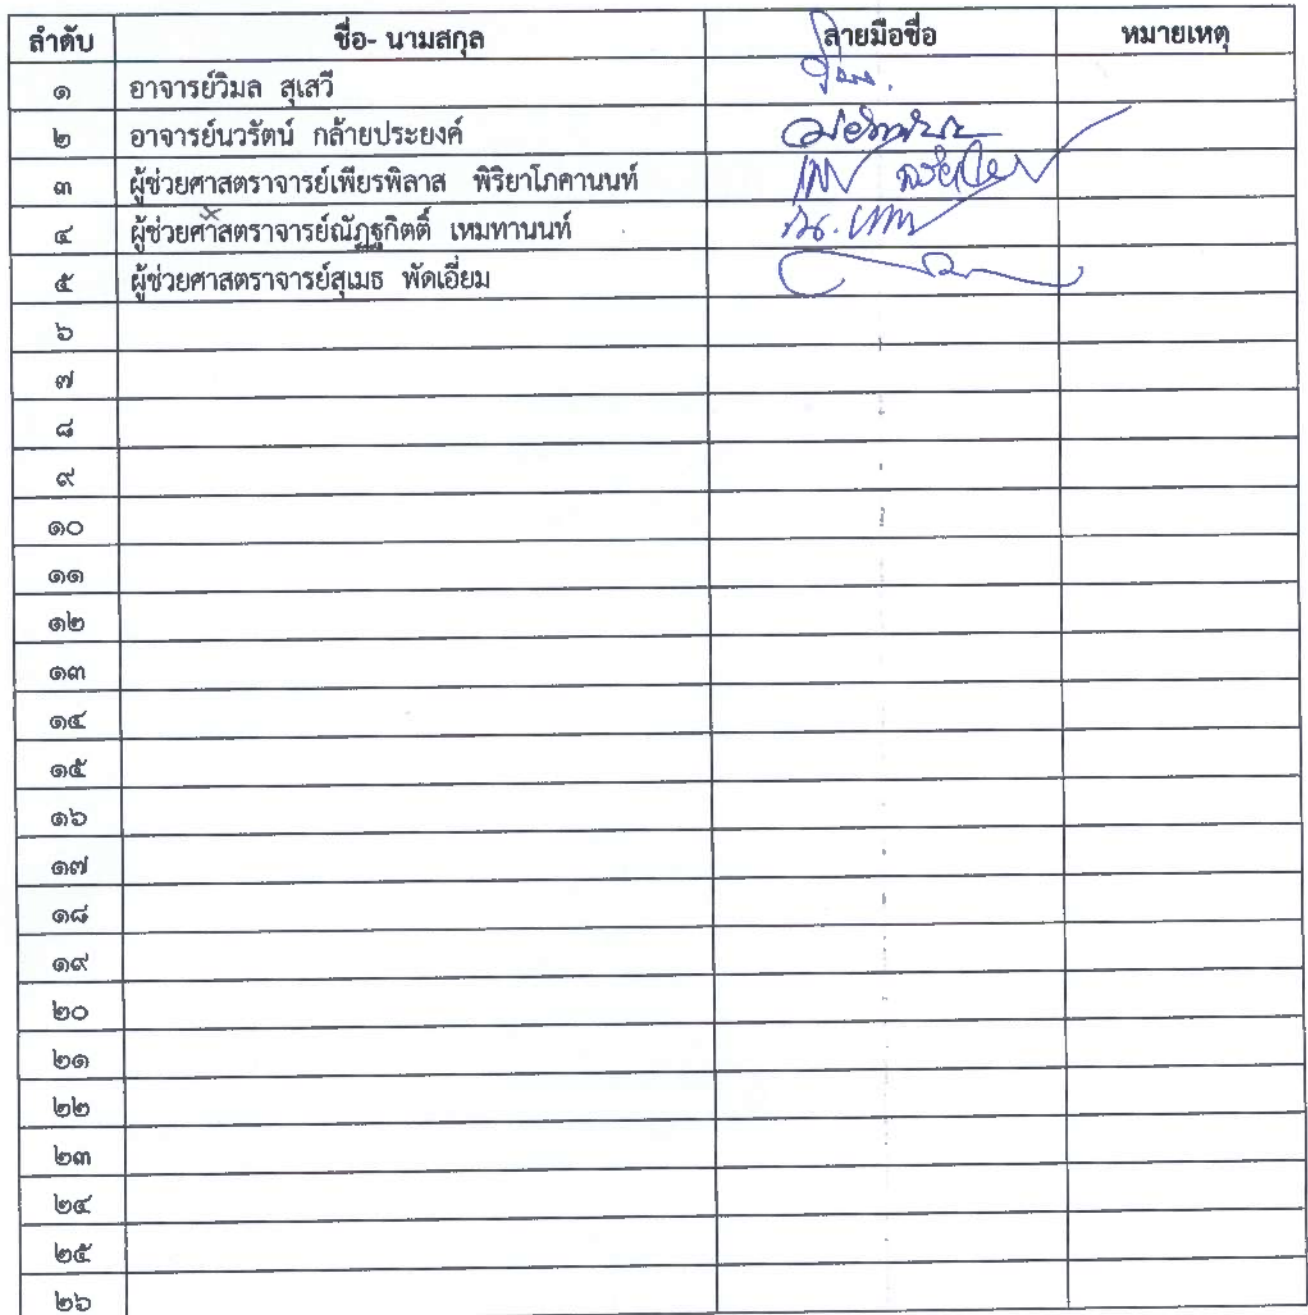 ลำดับ ชื่อ- นามสกุล ลายมือชื่อ หมายเหตุ
๑ อาจารย์วิมล สุเสวี
๒ อาจารย์นวรัตน์ กล้ายประยงค์
๓ ผู้ช่วยศาสตราจารย์เพียรพิลาส พิริยาโภคานนท์
๔ ผู้ช่วยศาสตราจารย์ณัฏฐกิตติ์ เหมทานนท์
๕ ผู้ช่วยศาสตราจารย์สุเมธ พัดเอี่ยม
๖
๗
๘
๙
๑๐
๑๑
๑๒
๑๓
๑๔
๑๕
๑๖
๑๗
๑๘
๑๙
๒๐
๒๑
๒๒
๒๓
๒๔
๒๕
๒๖